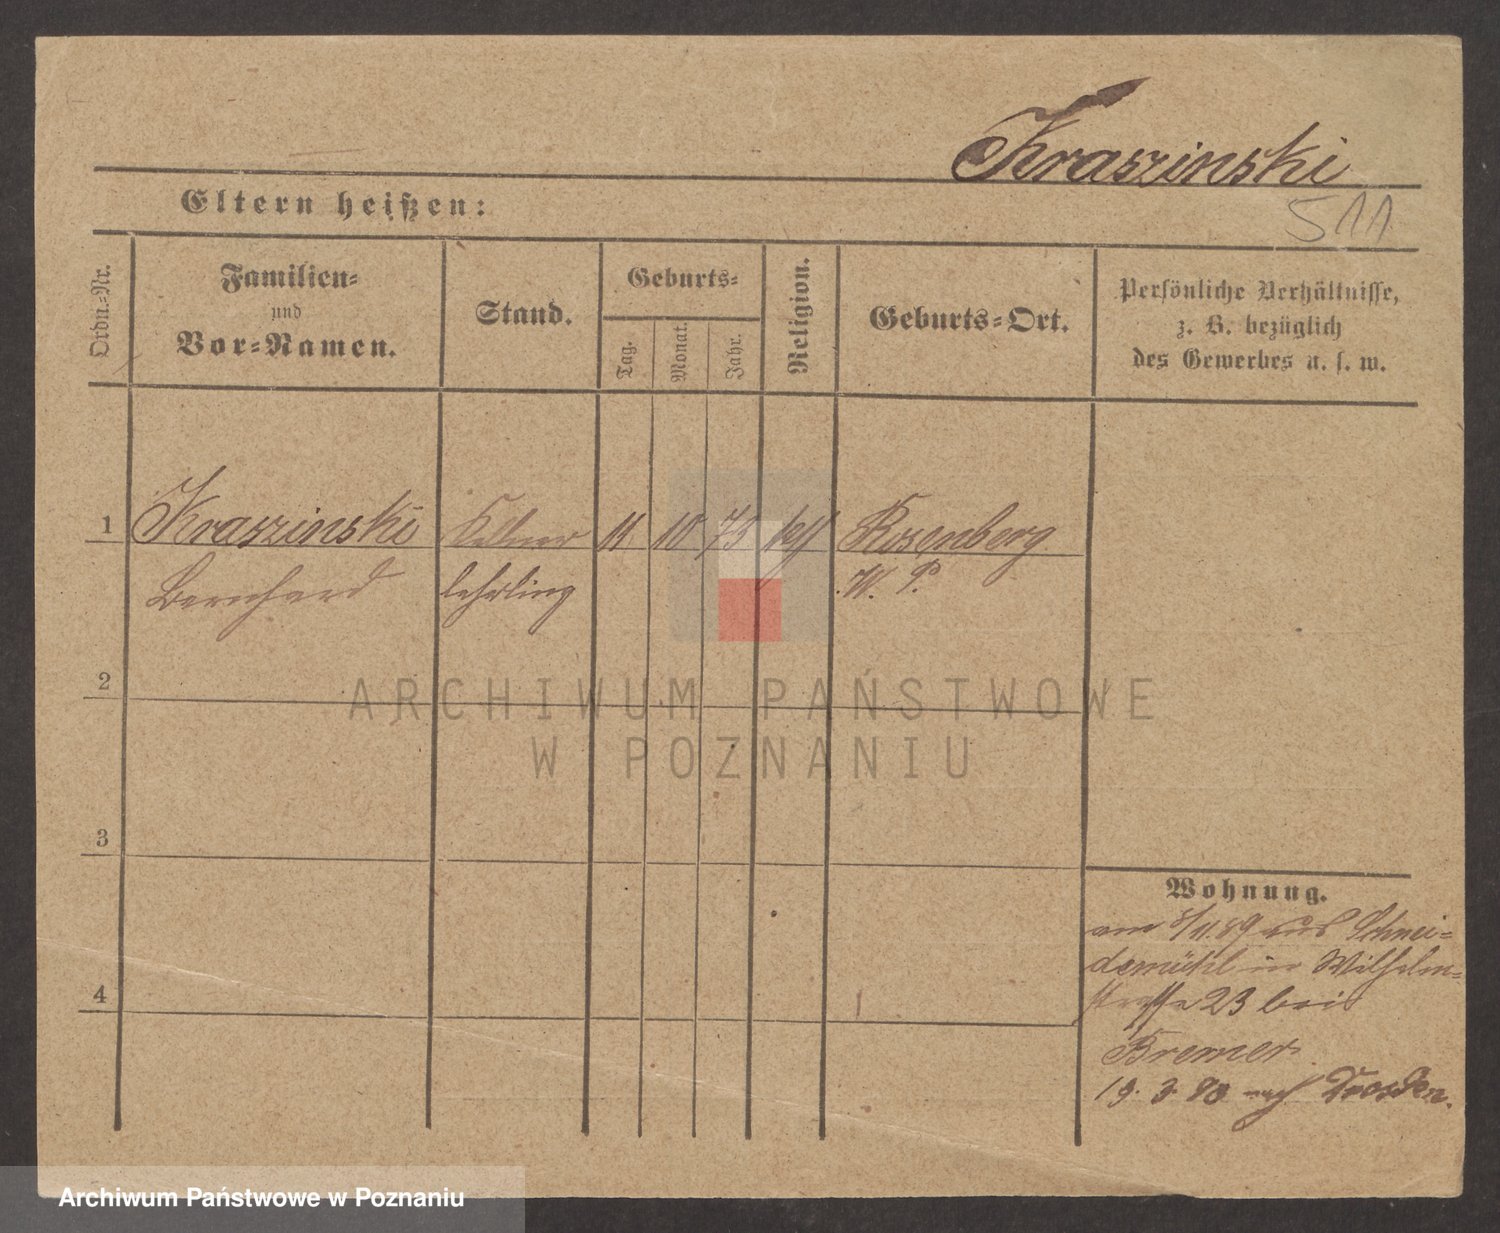 Kraszinski
511
Eltern heißen:
Ordn.-Nr.
Familien-
und
Vor-Namen.
Stand.
Geburts-
Tag.
Monat.
Jahr.
Religion.
Geburts-Ort.
Persönliche Verhältnisse,
z. B. bezüglich
des Gewerbes u. s. w.
1 Kraszinski Kellner 11 10 73 Rosenberg
Bernhard lehrling W. P.
2
3
4
Wohnung.
am 8/11.89 aus Schnei-
demühl in Wilhelm-
strasse 23 bei
Bremer
19. 3. 90 nach Dresden.
ARCHIWUM PAŃSTWOWE
W POZNANIU
Archiwum Państwowe w Poznaniu